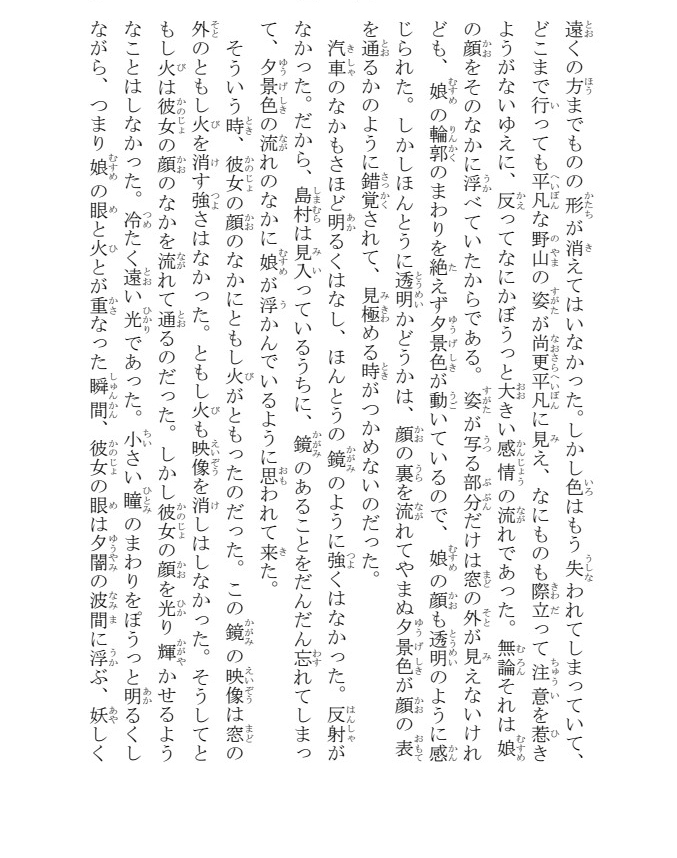 遠くの方までものの形が消えてはいなかった。しかし色はもう失われてしまっていて、
どこまで行っても平凡な野山の姿が尚更平凡に見え、なにものも際立って注意を惹き
ようがないゆえに、反ってなにかぼうっと大きい感情の流れであった。無論それは娘
の顔をそのなかに浮べていたからである。姿が写る部分だけは窓の外が見えないけれ
ども、娘の輪郭のまわりを絶えず夕景色が動いているので、娘の顔も透明のように感
じられた。しかしほんとうに透明かどうかは、顔の裏を流れてやまぬ夕景色が顔の表
を通るかのように錯覚されて、見極める時がつかめないのだった。
汽車のなかもさほど明るくはなし、ほんとうの鏡のように強くはなかった。反射が
なかった。だから、島村は見入っているうちに、鏡のあることをだんだん忘れてしまっ
て、夕景色の流れのなかに娘が浮かんでいるように思われて来た。
そういう時、彼女の顔のなかにともし火がともったのだった。この鏡の映像は窓の
外のともし火を消す強さはなかった。ともし火も映像を消しはしなかった。そうしてと
もし火は彼女の顔のなかを流れて通るのだった。しかし彼女の顔を光り輝かせるよう
なことはしなかった。冷たく遠い光であった。小さい瞳のまわりをぽうっと明るくし
ながら、つまり娘の眼と火とが重なった瞬間、彼女の眼は夕闇の波間に浮ぶ、妖しく